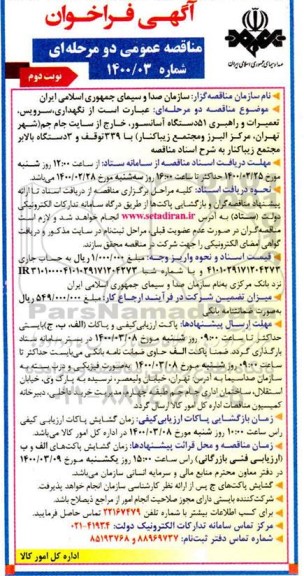 آگهی فراخوان
مناقصه عمومی دو مرحله‌ای
شماره ۱۴۰۰/۰۳
نوبت دوم
صدا و سیمای جمهوری اسلامی ایران
نام سازمان مناقصه‌گزار: سازمان صدا و سیمای جمهوری اسلامی ایران
موضوع مناقصه دو مرحله‌ای: عبارت است از نگهداری، سرویس،
تعمیرات و راهبری ۵۱ دستگاه آسانسور، خارج از سایت جام جم (شهر
تهران، مرکز البرز و مجتمع زیباکنار) با ۳۳۹ توقف و ۳ دستگاه بالابر
مجتمع زیباکنار به شرح اسناد مناقصه
مهلت دریافت اسناد مناقصه از سامانه ستاد: از ساعت ۱۲:۰۰ روز شنبه
مورخ ۱۴۰۰/۰۲/۲۵ حداکثر تا ساعت ۱۶:۰۰ روز سه‌شنبه مورخ ۱۴۰۰/۰۲/۲۸ می‌باشد.
نحوه دریافت اسناد: کلیه مراحل برگزاری مناقصه از دریافت اسناد تا ارائه
پیشنهاد مناقصه‌گران و بازگشایی پاکت‌ها از طریق درگاه سامانه تدارکات الکترونیکی
دولت (ستاد) به آدرس www.setadiran.ir انجام خواهد شد و لازم است
مناقصه‌گران در صورت عدم عضویت قبلی، مراحل ثبت‌نام در سایت مذکور و دریافت
گواهی امضای الکترونیکی را جهت شرکت در مناقصه محقق سازند.
قیمت اسناد و نحوه واریز وجه: مبلغ ۱/۰۰۰/۰۰۰ ریال به حساب جاری
نزد بانک مرکزی به‌نام سازمان صدا و سیمای جمهوری اسلامی ایران
میزان تضمین شرکت در فرآیند ارجاع کار: مبلغ ۵۴۹/۰۰۰/۰۰۰ ریال
به‌صورت ضمانتنامه بانکی
مهلت ارسال پیشنهادها: پاکت ارزیابی کیفی و پاکات (الف، ب، ج) بایستی
حداکثر تا ساعت ۰۹:۰۰ روز شنبه مورخ ۱۴۰۰/۰۳/۰۸ در بستر سامانه ستاد
بارگذاری گردد. ضمنا پاکت الف حاوی ضمانت نامه بانکی می‌بایست حداکثر تا
ساعت ۰۹:۰۰ روز شنبه مورخ ۱۴۰۰/۰۳/۰۸ به‌صورت فیزیکی و در بسته به
سازمان صداسیما به آدرس تهران، خیابان ولیعصر، نرسیده به پارک وی، خیابان
کمیسیون مناقصات اداره کل امور کالا ارسال گردد.
زمان بازگشایی پاکات ارزیابی کیفی: زمان گشایش پاکات ارزیابی کیفی
راس ساعت ۱۰:۰۰ روز شنبه مورخ ۱۴۰۰/۰۳/۰۸ در اداره کل امور کالا می‌باشد.
زمان مناقصه و محل قرائت پیشنهادها: زمان گشایش پاکت‌های الف و ب
(ارزیابی فنی بازرگانی) راس ساعت ۱۵:۰۰ روز یکشنبه مورخ ۱۴۰۰/۰۳/۰۹
در دفتر معاون محترم منابع مالی و سرمایه انسانی سازمان می‌باشد.
گشایش پاکت‌های ج پس از ارائه نظر کارشناسی سازمان انجام خواهد پذیرفت.
شرکت‌کننده بایستی دارای مجوز صلاحیت انجام امور از مراجع ذیصلاح باشد.
برای کسب اطلاعات بیشتر با شماره تلفن ۲۲۱۶۷۴۷۹ تماس حاصل فرمایید.
مرکز تماس سامانه تدارکات الکترونیک دولت: ۰۲۱-۴۱۹۳۴
شماره تماس دفتر ثبت‌نام: ۸۸۹۶۹۷۳۷ و ۸۵۱۹۳۷۶۸
اداره کل امور کالا